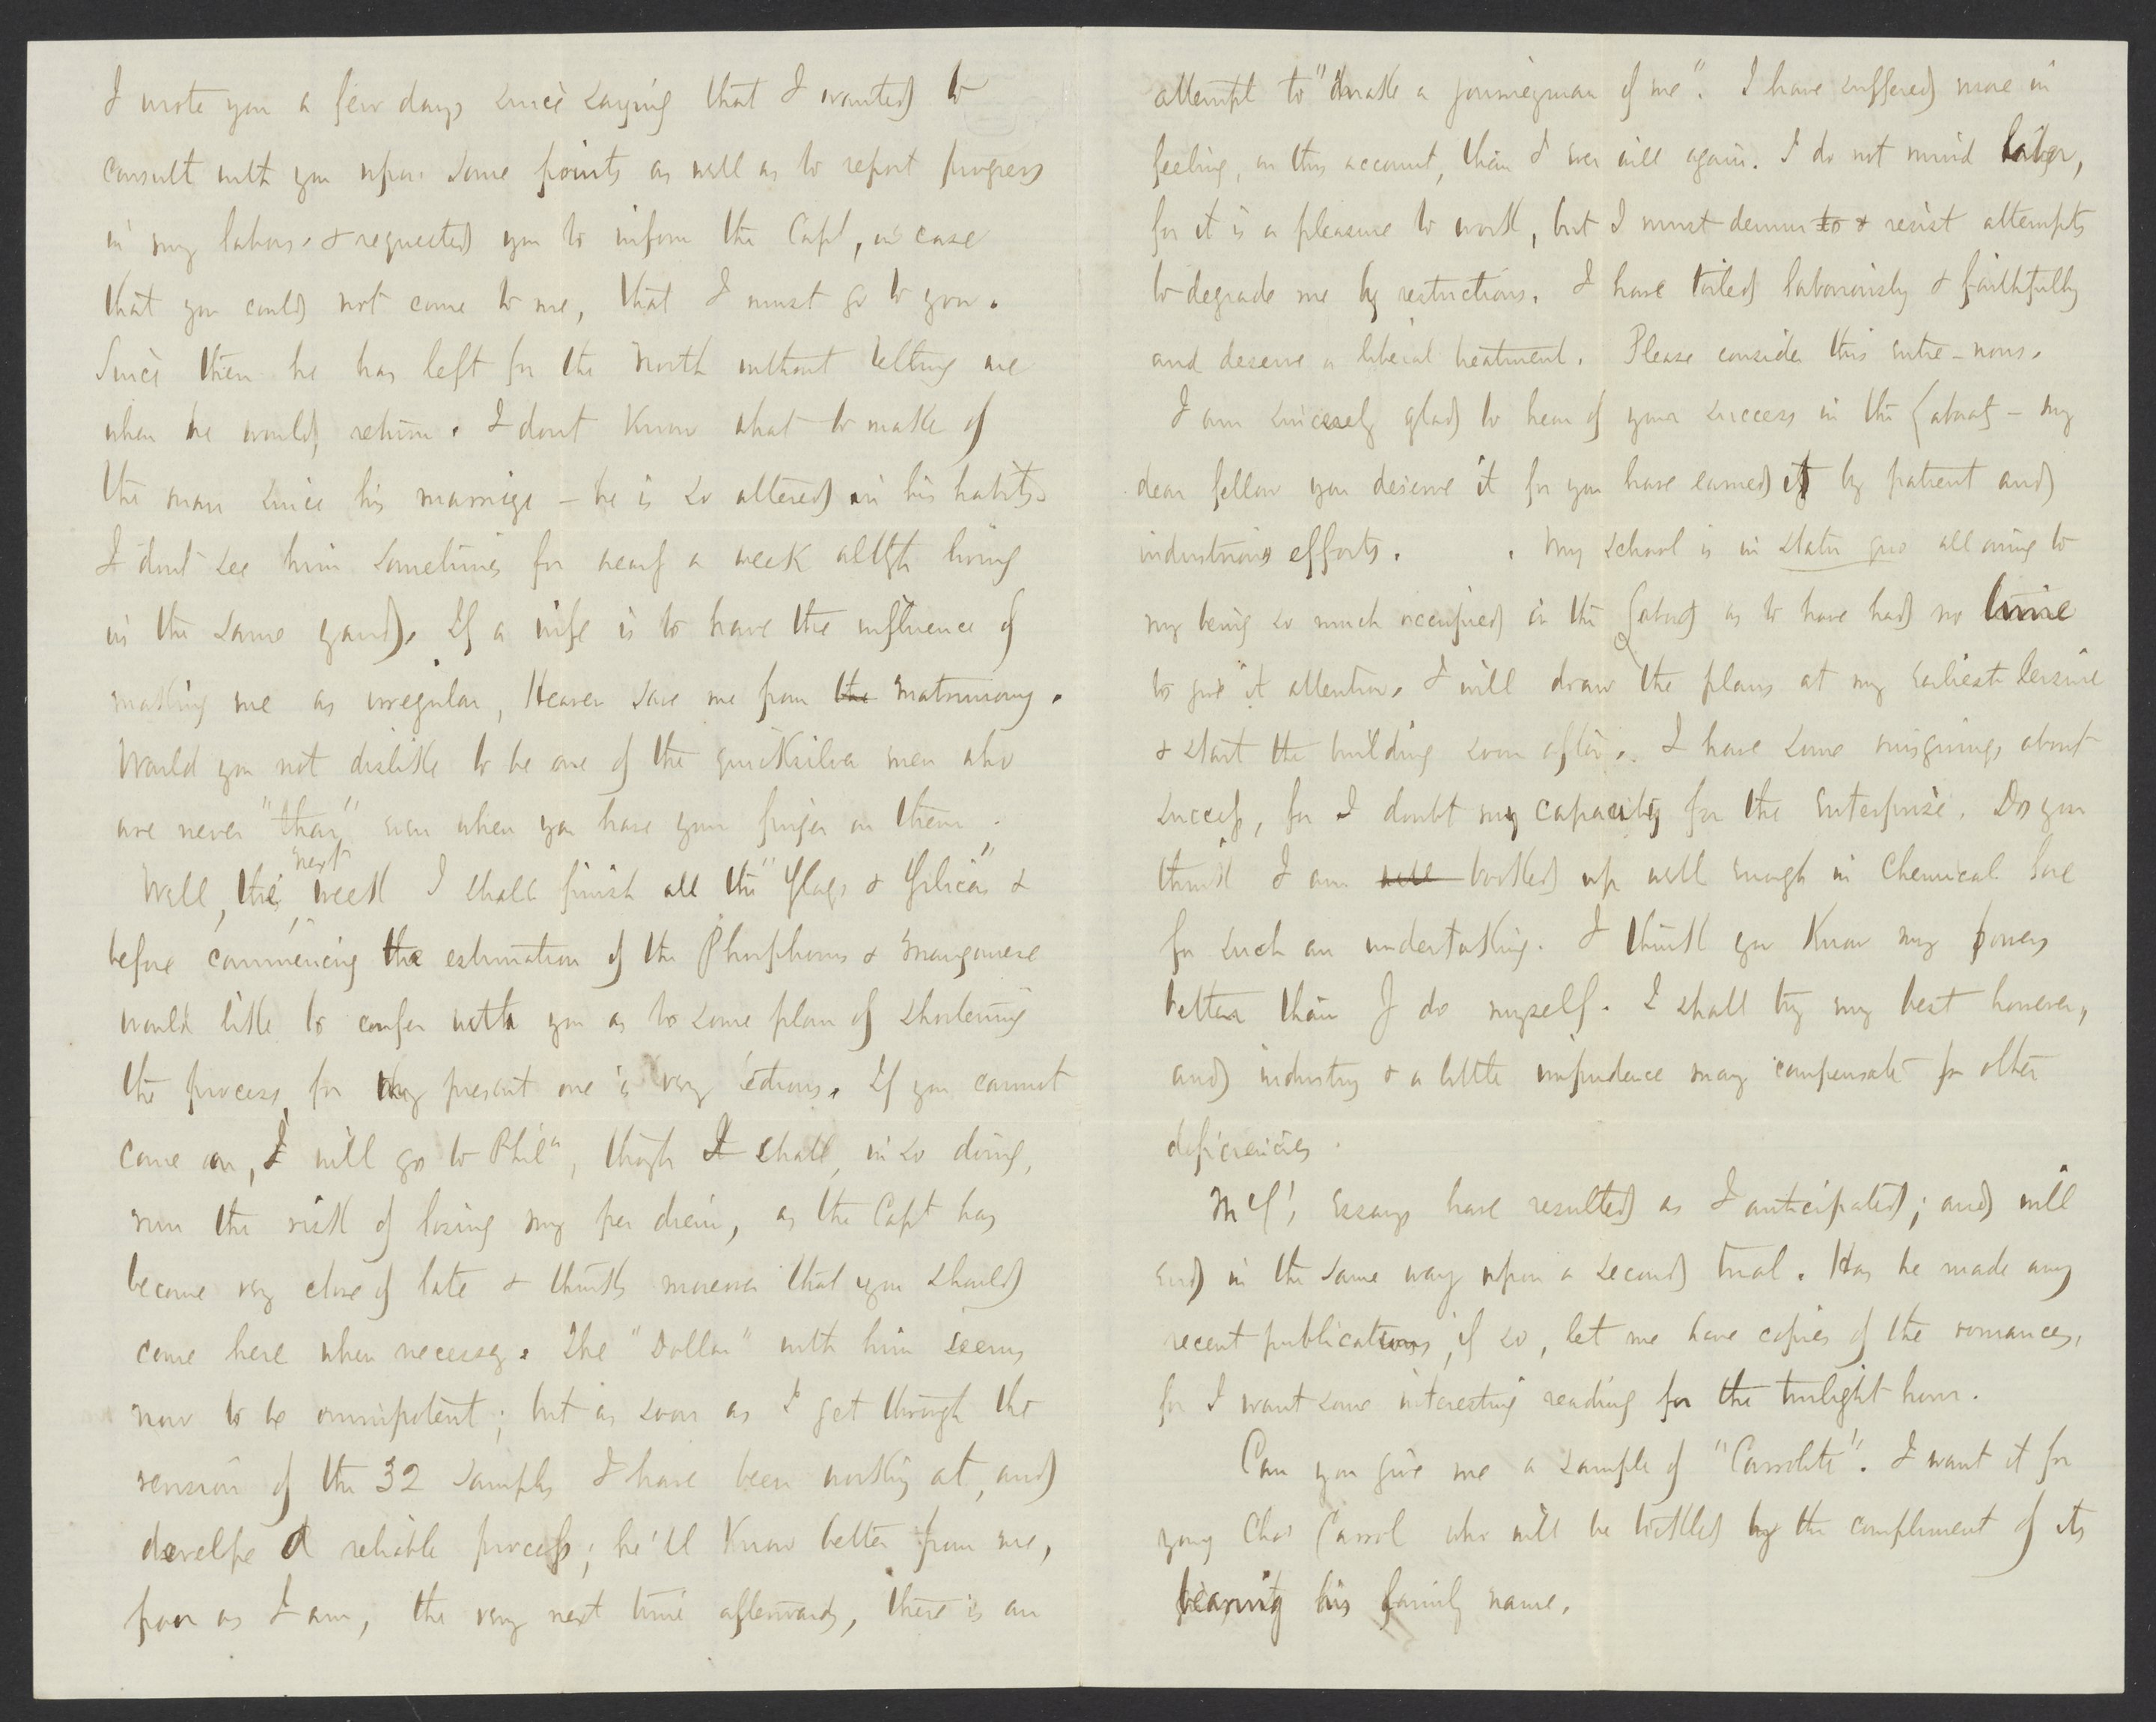 I wrote you a few days since saying that I wanted to
consult with you upon some points as well as to report progress
in my labors & requested you to inform the Capt, in case
that you could not come to me, that I must go to you.
Since then he has left for the North without telling me
when he would return. I dont know what to make of
the man since his marriage - he is so altered in his habits.
I dont see him sometimes for nearly a week altho living
in the same yard. If a wife is to have the influence of
making me as irregular, Heaven save me from the matrimony.
Would you not dislike to be one of the quicksilver men who
are never "thar" even when you have your finger on them.
Well, the next week I shall finish all the "Slags & Silicas" &
before commencing the estimation of the Phosphorus & Manganese
would like to confer with you as to some plan of shortening
the process, for my present one is very tedious. If you cannot
come on, I will go to Phila, though I shall, in so doing,
run the risk of losing my per diem, as the Capt has
become very close of late & thinks moreover that you should
come here when necessary. The "Dollar" with him seems
now to be omnipotent; but as soon as I get through the
revision of the 32 samples I have been working at, and
develpe a reliable process; he'll know better from me,
poor as I am, the very next time afterwards, there is an
attempt to "make a journeyman of me". I have suffered more in
feeling, on this account, than I ever will again. I do not mind labor,
for it is a pleasure to work, but I must demur to & resist attempts
to degrade me by restrictions. I have toiled laboriously & faithfully
and deserve a liberal treatment. Please consider this entre-nous.
I am sincerely glad to hear of your success in the Laboraty - my
dear fellow you deserve it for you have earned it by patient and
industrious efforts. My school is in statu quo all owing to
my being so much occupied in the Laboraty as to have had no time
to give it attention. I will draw the plans at my earliest leisure
& start the building soon after. I have some misgivings about
success, for I doubt my capacity for the enterprise. Do you
think I am well booked up well enough in Chemical lore
for such an undertaking. I think you know my powers
better than I do myself. I shall try my best however,
and industry & a little impudence may compensate for other
deficiencies.
essays have resulted as I anticipated; and will
end in the same way upon a second trial. Has he made any
recent publications, if so, let me have copies of the romances,
for I want some interesting reading for the twilight hour.
Can you give me a sample of "Carrolite". I want it for
young Chas Carrol who will be tickled by the compliment of its
bearing his family name.